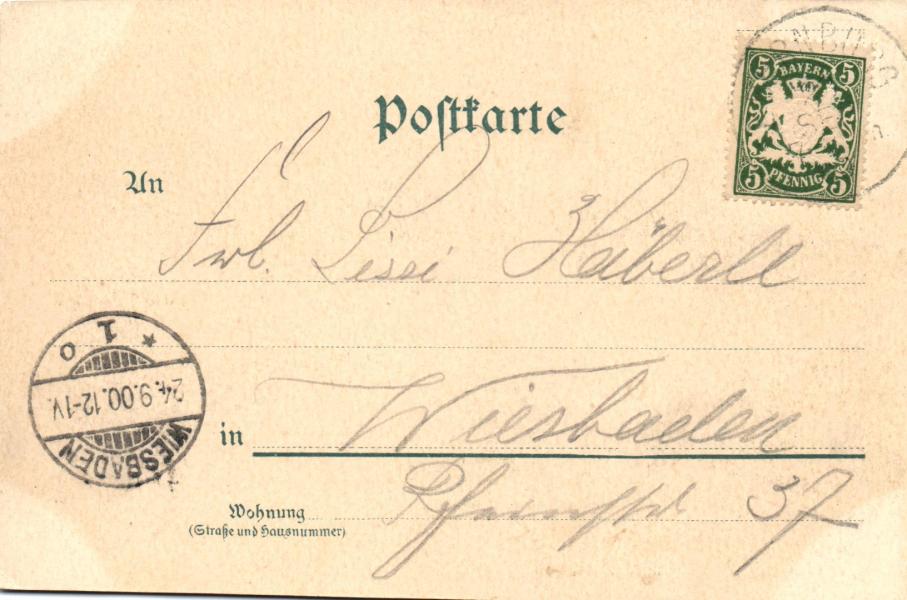 Postkarte
5 BAYERN 5
5 PFENNIG 5
An
Frl. Lissi Häberle
* 1 o
24.9.00.12-1V.
WIESBADEN
in Wiesbaden
Wohnung
37
(Straße und Hausnummer)